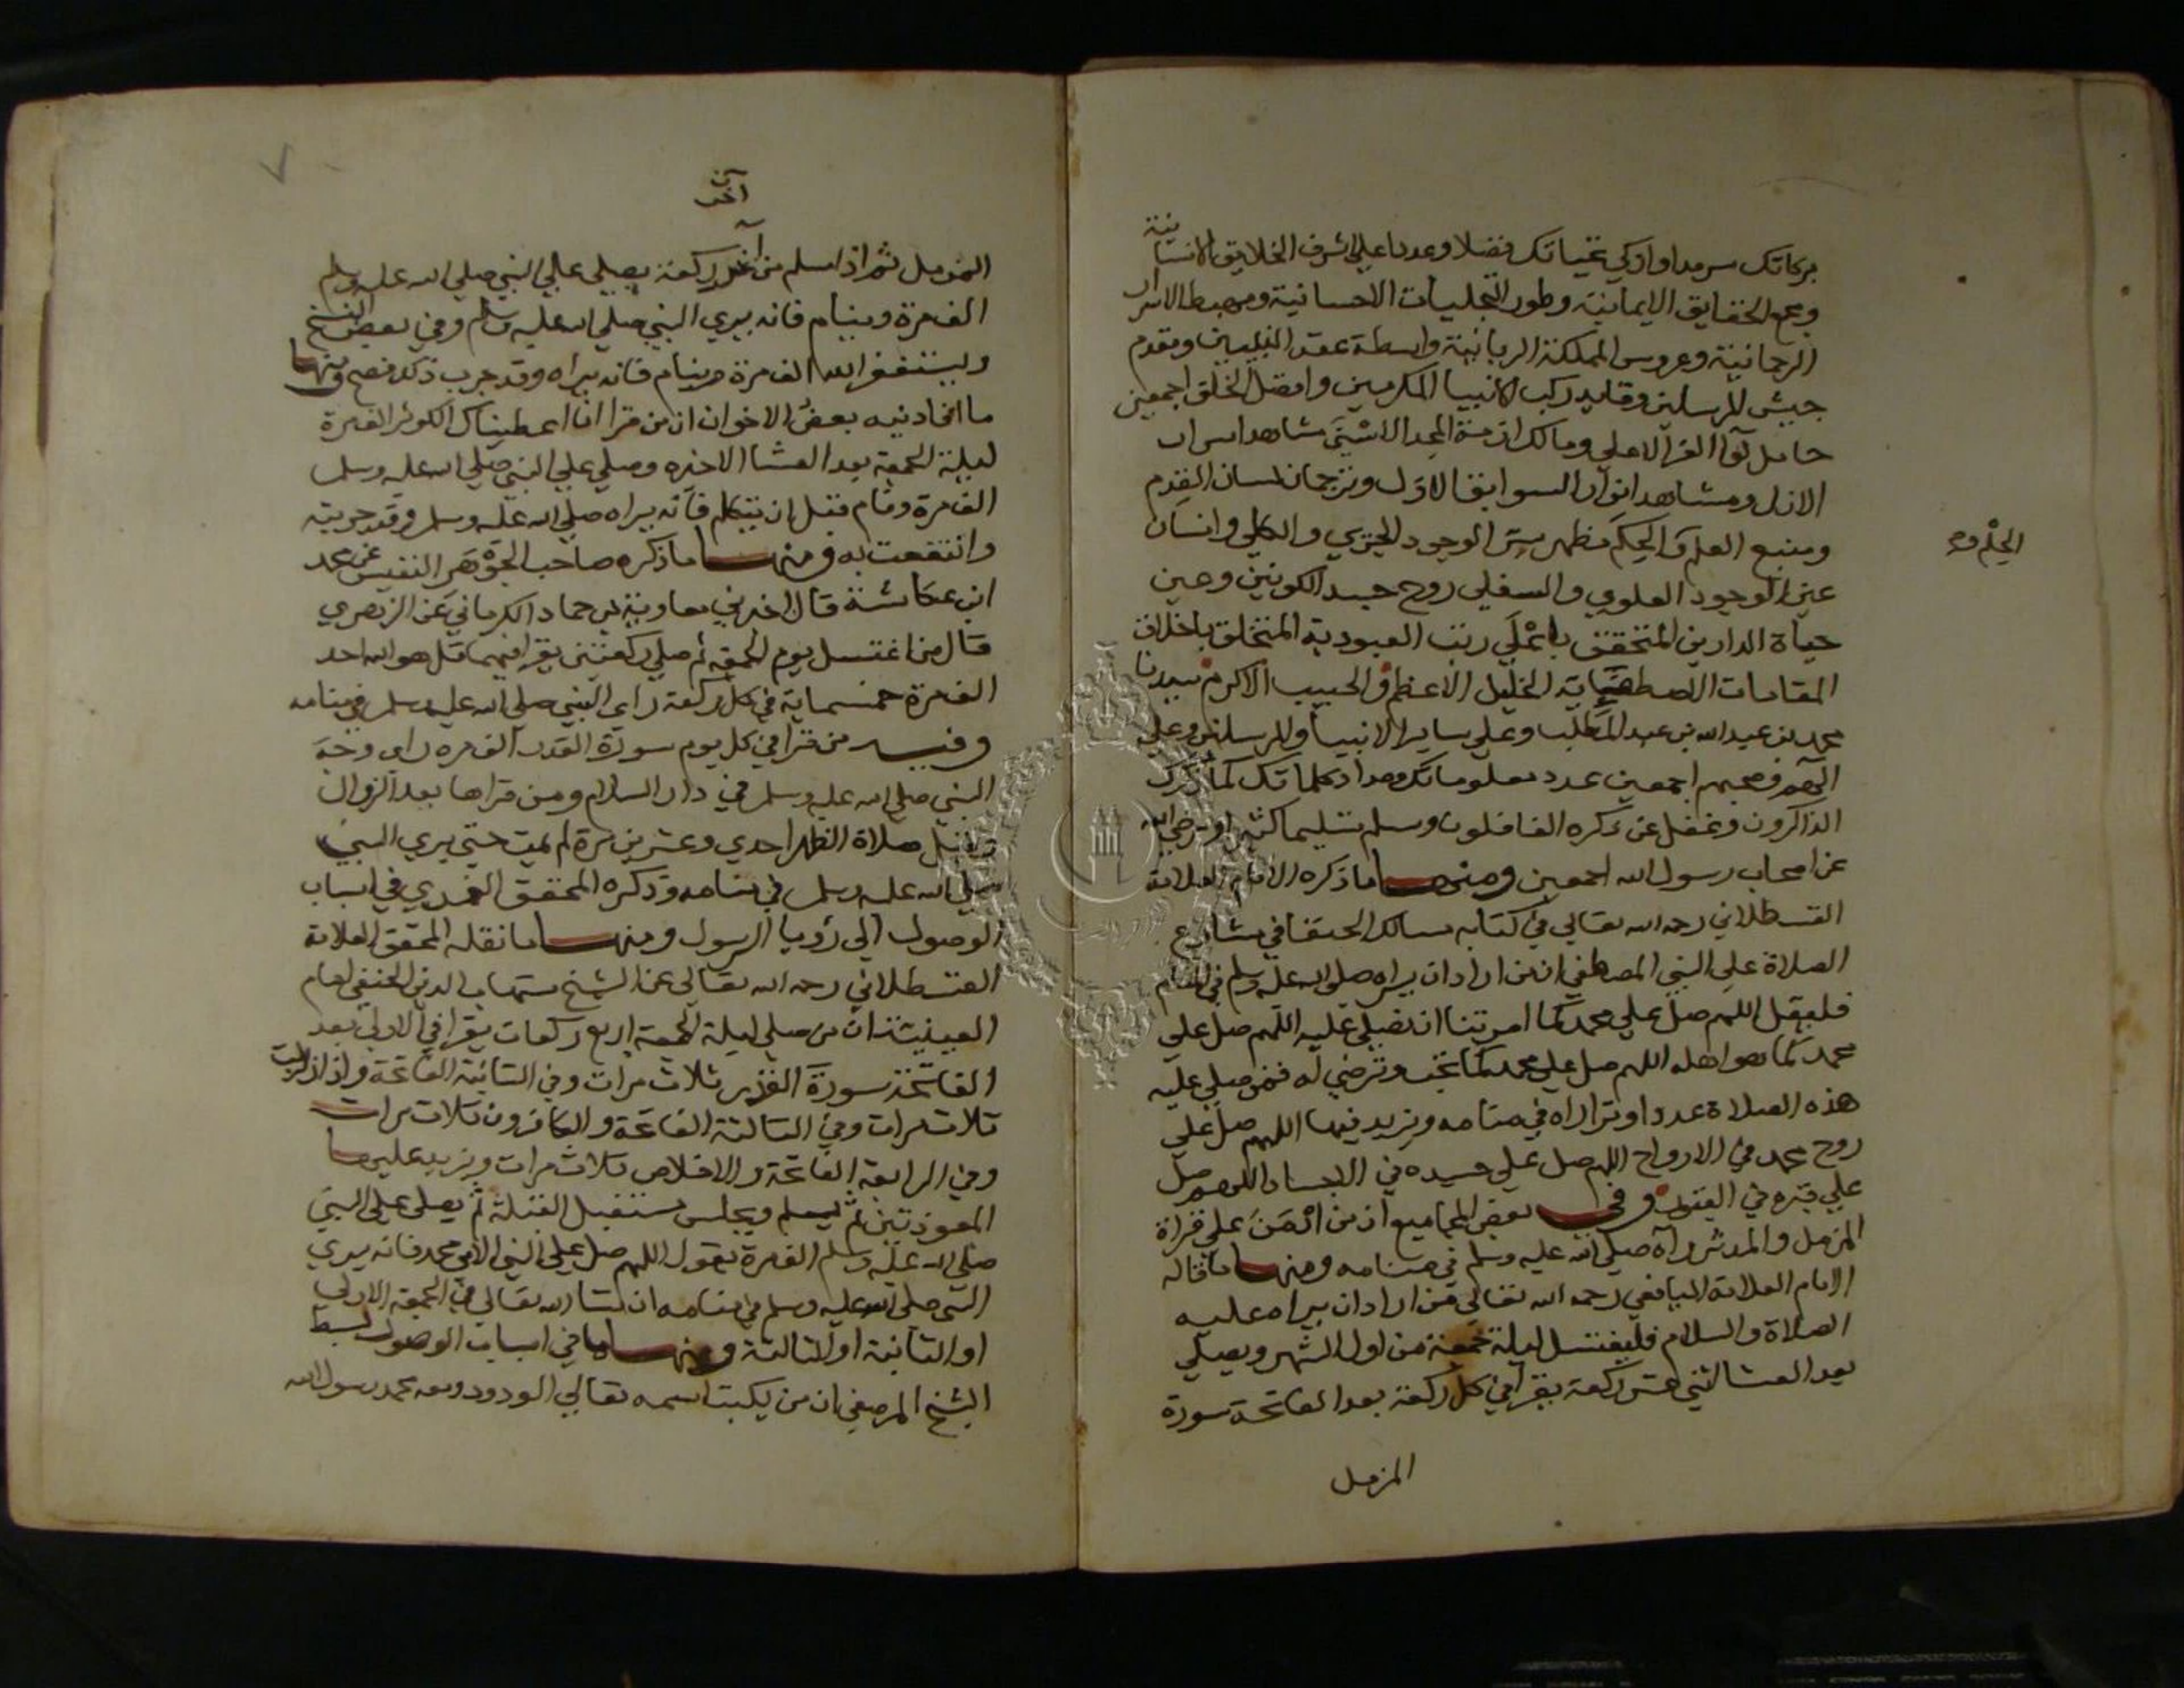 بركاتك سرمدا وازكي تحياتك فضلا وعددا علي اشرف الخلايق الانسانية
ومجمع الحقايق الايمانية وطور التجليات الاحسانية ومهبط الاسرار
الرحمانية وعروس المملكة الربانية واسطة عقد النبيين ومقدم
جيش المرسلين وقايد ركب الانبيا المكرمين وافضل الخلق اجمعين
حامل لوآ العز الاعلي ومالك ازمة المجد الاسني شاهد اسرار
الازل ومشاهد انوار السوابق الاول وترجمان لسان القدم
ومنبع العلم والحكم مظهر سر الوجود الجزي والكلي وانسان
الحلم و
عين الوجود العلوي والسفلي روح جسد الكونين وعين
حياة الدارين المتحقق باعلي رتب العبودية المتخلق باخلاق
المقامات الاصطفايية الخليل الاعظم والحبيب الاكرم سيدنا
محمد بن عبد الله بن عبد المطلب وعلي ساير الانبيا والمرسلين وعلي
الهم وصحبهم اجمعين عدد معلوماتك ومداد كلماتك كلما ذكرك
الذاكرون وغفل عن ذكره الغافلون وسلم تسليما كثيرا ورضي الله
عن اصحاب رسول الله اجمعين ومنها ما ذكره الامام العلامة
القسطلاني رحمه الله تعالي في كتابه مسالك الحنفا في مشارع
الصلاة علي النبي المصطفي ان من اراد ان يراه صلي الله عليه وسلم في المنام
فليقل اللهم صل علي محمد كما امرتنا ان نصلي عليه اللهم صل علي
محمد كما هو اهله اللهم صل علي محمد كما تحب وترضي له فمن صلي عليه
هذه الصلاة عددا وترا راه في منامه ويزيد فيها اللهم صل علي
روح محمد في الارواح اللهم صل علي جسده في الاجساد اللهم صل
علي قبره في القبور وفي بعض المجاميع ان من ادمن علي قراة
المزمل والمدثر رآه صلي الله عليه وسلم في منامه ومنها ما قاله
الامام العلامة اليافعي رحمه الله تعالي من اراد ان يراه عليه
الصلاة والسلام فليغتسل ليلة جمعة من اول الشهر ويصلي
بعد العشا اثني عشر ركعة يقرا في كل ركعة بعد الفاتحة سورة
المزمل
٧
آخر
المزمل ثم اذا سلم من اخر ركعة يصلي علي النبي صلي الله عليه وسلم
الف مرة وينام فانه يري النبي صلي الله عليه وسلم وفي بعض النسخ
ويستغفر الله الف مرة وينام فانه يراه وقد جرب ذلك فصح ومنها
ما افادنيه بعض الاخوان ان من قرا انا اعطيناك الكوثر الف مرة
ليلة الجمعة بعد العشا الاخره وصلي علي النبي صلي الله عليه وسلم
الف مرة ونام قبل ان يتكلم فانه يراه صلي الله عليه وسلم وقد جربته
وانتفعت به ومنها ما ذكره صاحب الجوهر النفيس عن محمد
ابن عكاشة قال اخبرني معاوية بن حماد الكرماني عن الزهري
قال من اغتسل يوم الجمعة ثم صلي ركعتين يقرا فيهما قل هو الله احد
الف مرة خمسماية في كل ركعة راي النبي صلي الله عليه وسلم في منامه
وفيه من قرا في كل يوم سورة القدر الف مره راي وجه
النبي صلي الله عليه وسلم في دار السلام ومن قراها بعد الزوال
وقبل صلاة الظهر احدي وعشرين مرة لم يمت حتي يري النبي
صلي الله عليه وسلم في منامه وذكره المحقق الغمري في اسباب
الوصول الي رؤيا الرسول ومنها ما نقله المحقق العلامة
القسطلاني رحمه الله تعالي عن الشيخ شهاب الدين الحنفي امام
ان من صلي ليلة الجمعة اربع ركعات يقرا في الاولي بعد
الفاتحة سورة القدر ثلاث مرات وفي الثانية الفاتحة واذا زلزلت
ثلاث مرات وفي الثالثة الفاتحة والكافرون ثلاث مرات
وفي الرابعة الفاتحة والاخلاص ثلاث مرات ويزيد عليها
المعوذتين ثم يسلم ويجلس مستقبل القبلة ثم يصلي علي النبي
صلي الله عليه وسلم الف مرة يقول اللهم صل علي النبي الامي محمد فانه يري
النبي صلي الله عليه وسلم في منامه ان شا الله تعالي في الجمعة الاولي
او الثانية او الثالثة ومنها ما في اسباب الوصول لسبط
الشيخ المرصفي ان من يكتب اسمه تعالي الودود ومعه محمد رسول الله